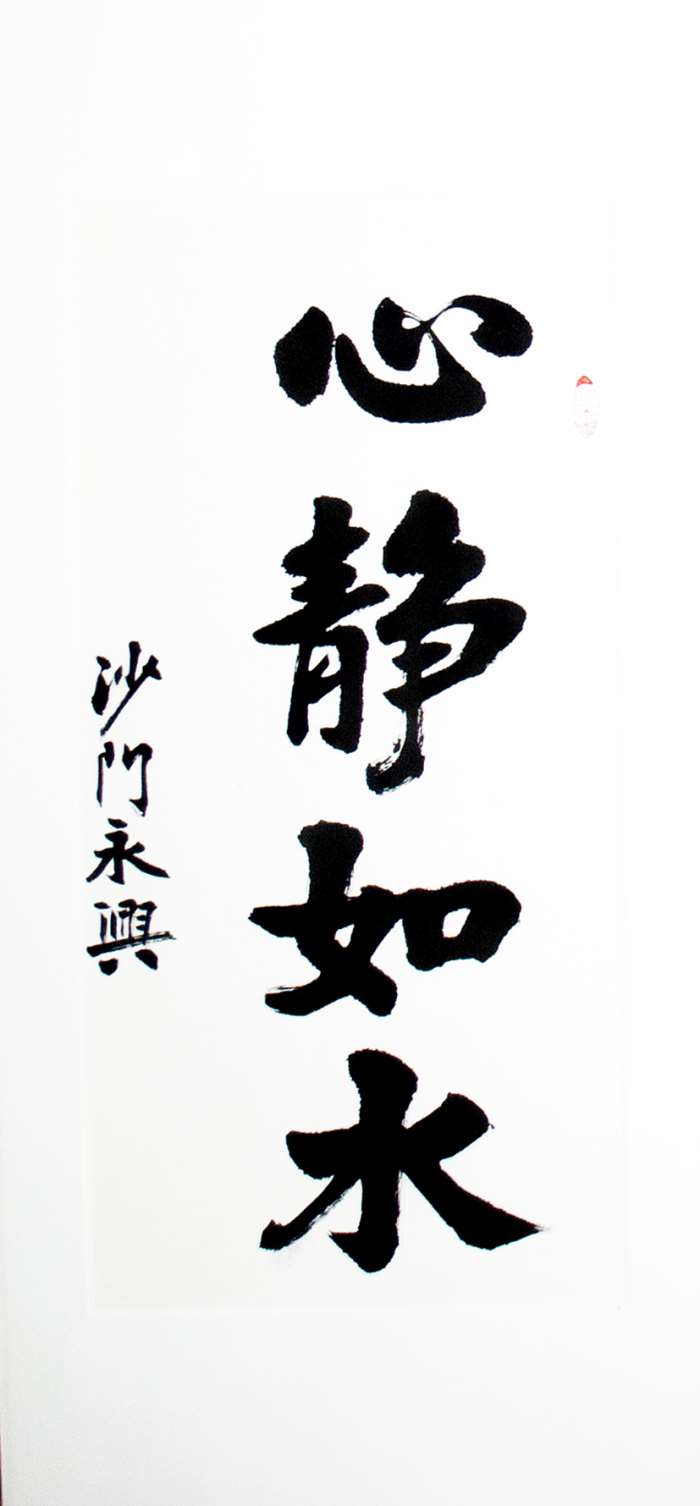 心静如水
沙門永興